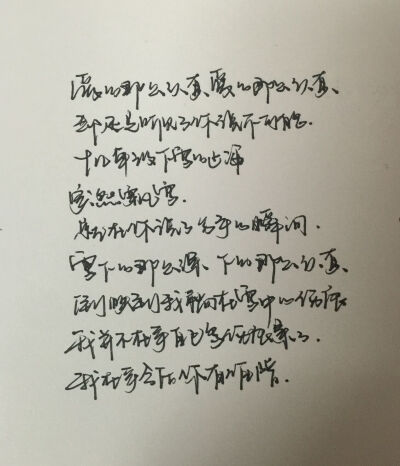 爱的那么认真、爱的那么认真、
却还是听见了你说不可能.
十几年没下雪的上海
突然飘雪.
就在你说了分手的瞬间.
雪下的那么深、下的那么认真、
倒映出我躺在雪中的伤痕
我并不在乎自己 伤痕累
我在乎今后你有谁陪.